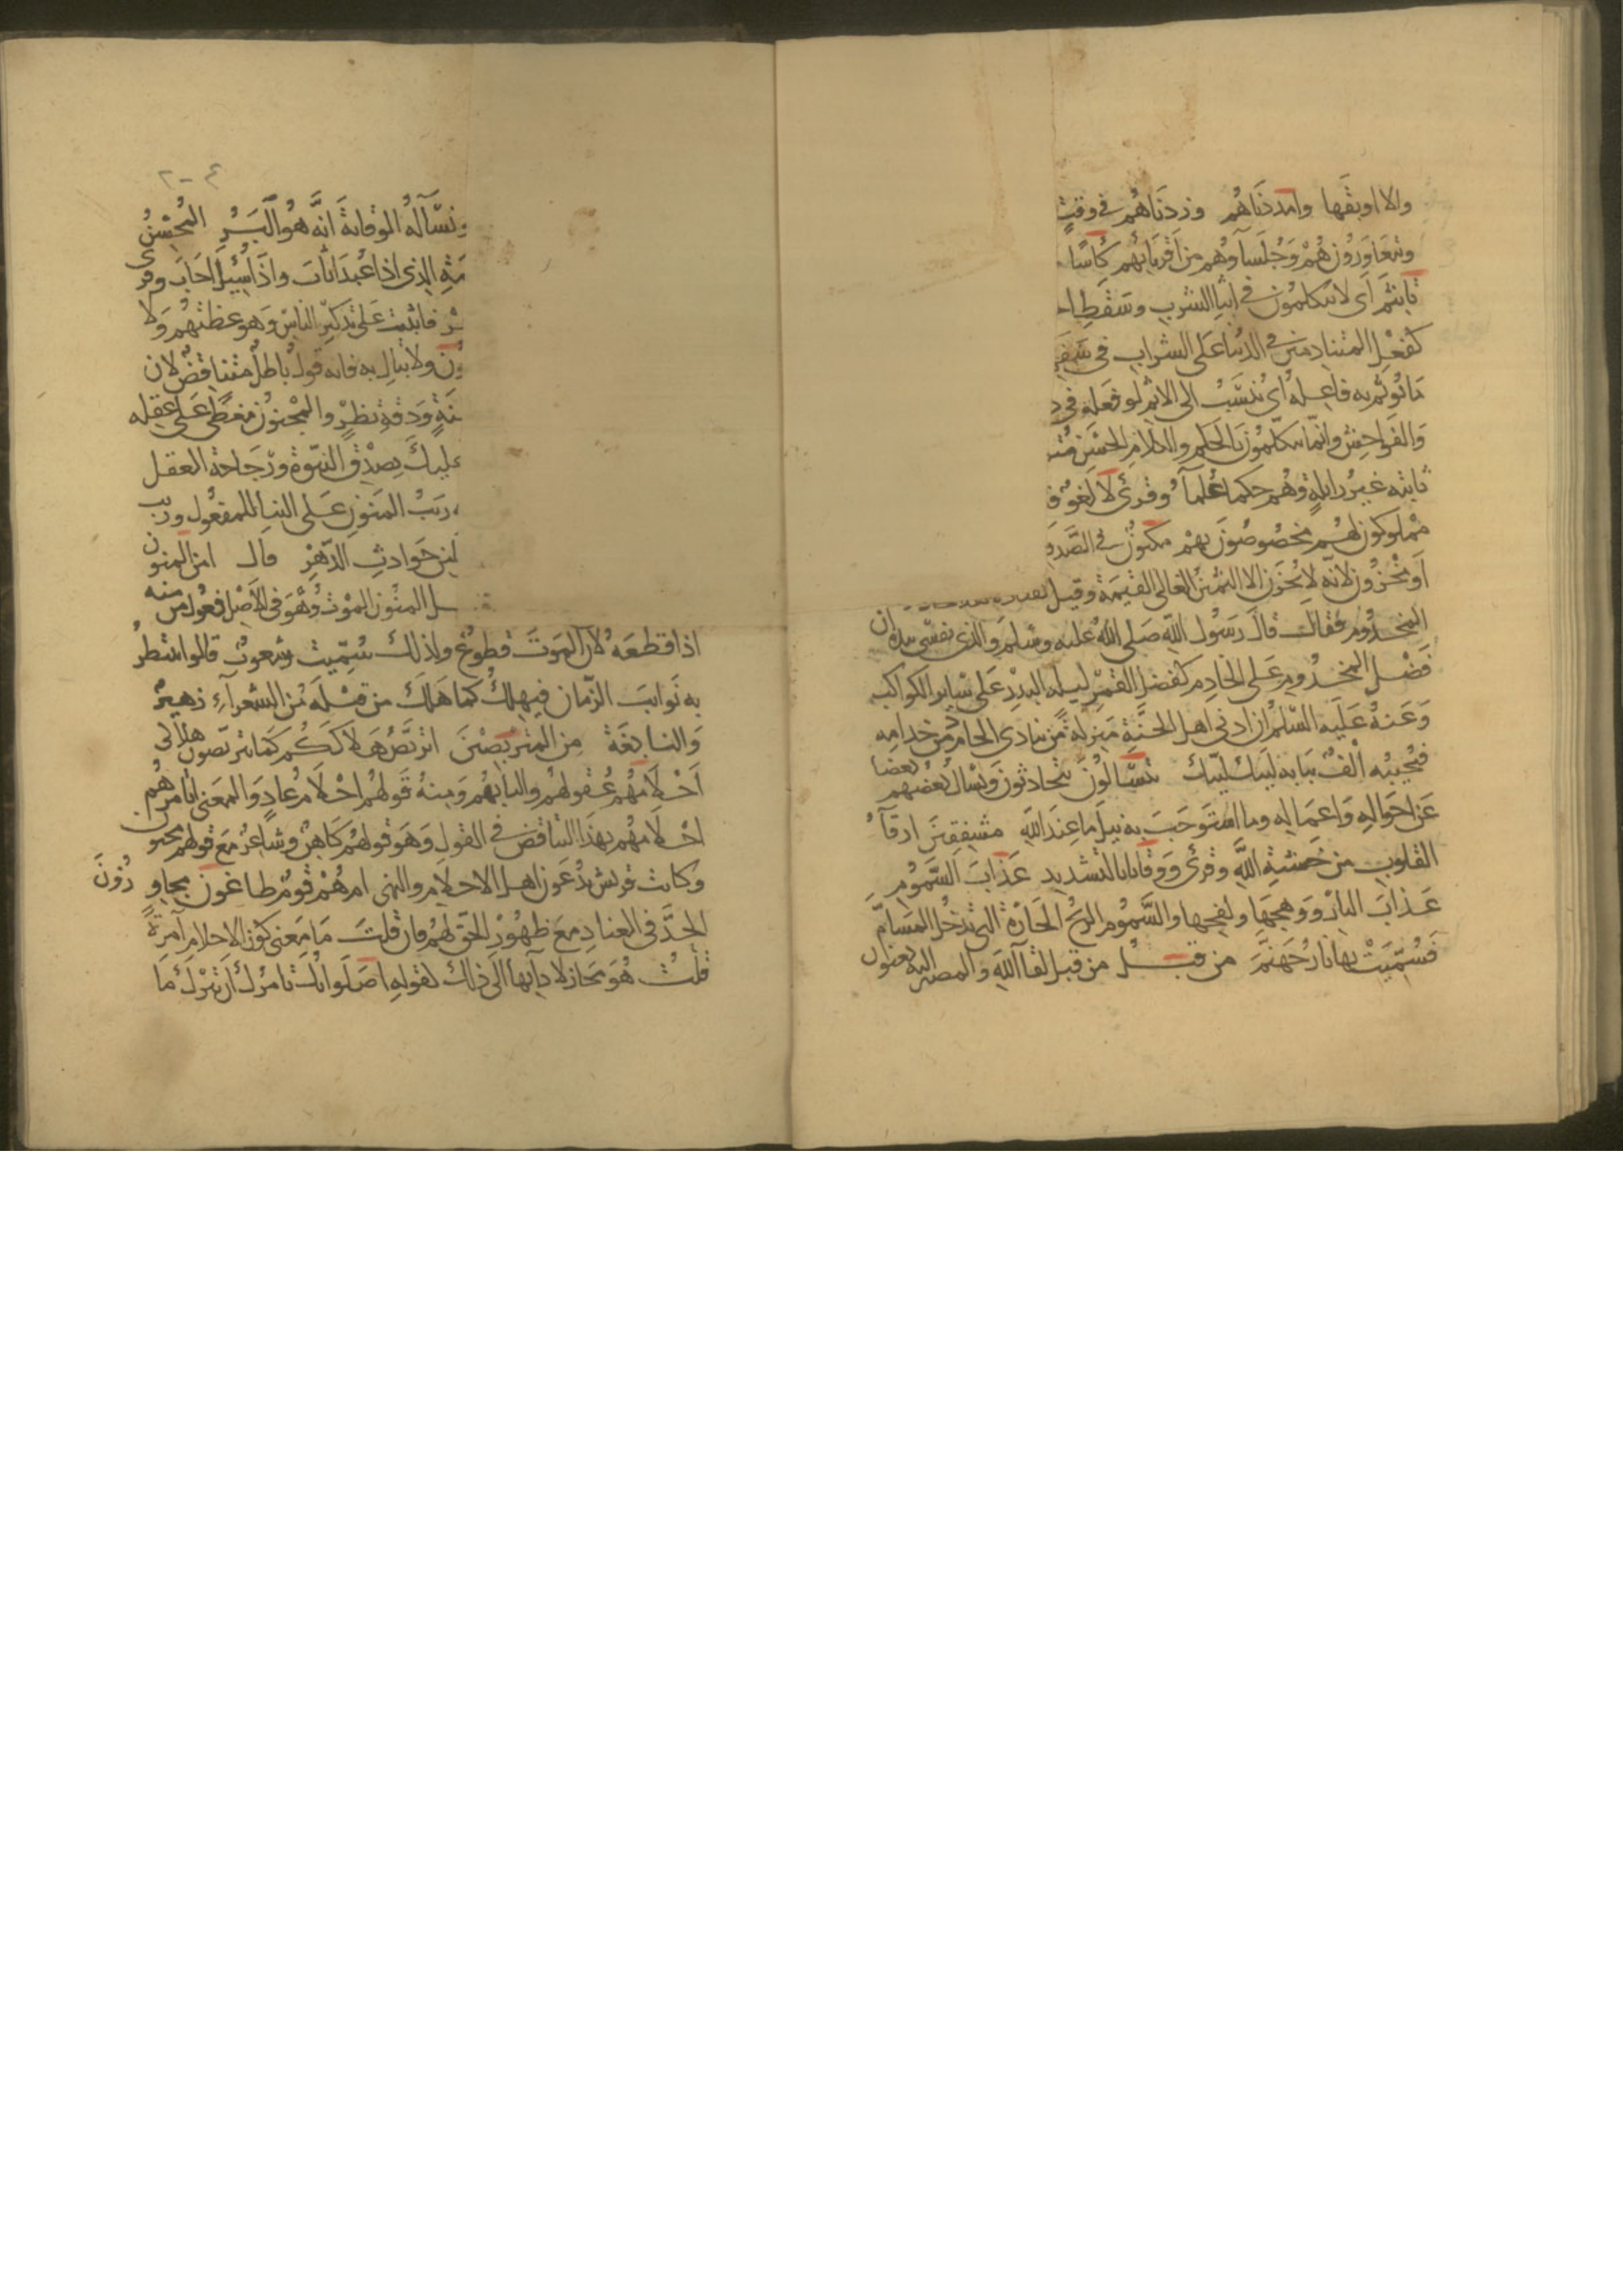 والا اوبقها وامددناهم وزدناهم في وقت
ويتعاورون هم وجلساوهم من اقربائهم كأسا
تاثيم اى لا يتكلمون في اثنا الشرب وسقط
كفعل المتنادمين في الدنيا على الشراب في
ما يؤثم به فاعله اى ينسب الى الاثم لو فعله في
والفواحش وانما يتكلمون بالحكم والكلام الحسن
ثابتة غير زايلة وهم حكما علما وقرئ لا لغو
مملوكون لهم مخصوصون بهم مكنون في الصدف
او مخزون لانه لا يخزن الا الثمين الغالى القيمة وقيل
المخدوم فقال قال رسول الله صلى الله عليه وسلم والذى نفسى بيده ان
فضل المخدوم على الخادم كفضل القمر ليلة البدر على سائر الكواكب
وعنه عليه السلام ان ادنى اهل الجنة منزلة من ينادى الخادم من خدامه
فيجيبه الف ببابه لبيك لبيك يتسالون يتحادثون ويسال بعضهم بعضا
عن احواله واعماله وما استوجب به نيل ما عند الله مشفقين ارقآء
القلوب من خشية الله وقرئ ووقانا بالتشديد عذاب السموم
عذاب النار ووهجها ولفحها والسموم الريح الحارة التى تدخل المسام
فسميت بها نار جهنم من قبل من قبل لقا الله والمصير اليه يعنون
ونسآله الوقاية انه هو البر المحسن
الذى اذا عبد اثاب واذا سئل اجاب وقرى
فاثبت على تذكير الناس وهو عظتهم ولا
ولا تبال به فانه قول باطل متناقض لان
ودقة نظر والمجنون مغطى على عقله
عليك بصدق النبوة ورجاحة العقل
ريب المنون على البنا للمفعول وريب
من حوادث الدهر قال امن المنون
المنون الموت وهو في الاصل فعول من منه
اذا قطعه لان الموت قطوع ولذلك سميت شعوب قالوا ننتظر
به نوايب الزمان فيهلك كما هلك من قبله من الشعرآء زهير
والنابغة من المتربصين اتربص هلاككم كما تتربصون هلاكى
احلامهم عقولهم والبابهم ومنه قولهم احلام عاد والمعنى اتامرهم
احلامهم بهذا التناقض في القول وهو قولهم كاهن وشاعر مع قولهم مجنون
وكانت قريش يدعون اهل الاحلام والنهى ام هم قوم طاغون مجاوزون
الحد في العناد مع ظهور الحق لهم فان قلت ما معنى كون الاحلام آمرة
قلت هو مجاز لادآيها الى ذلك لقوله اصلواتك تامرك ان نترك ما